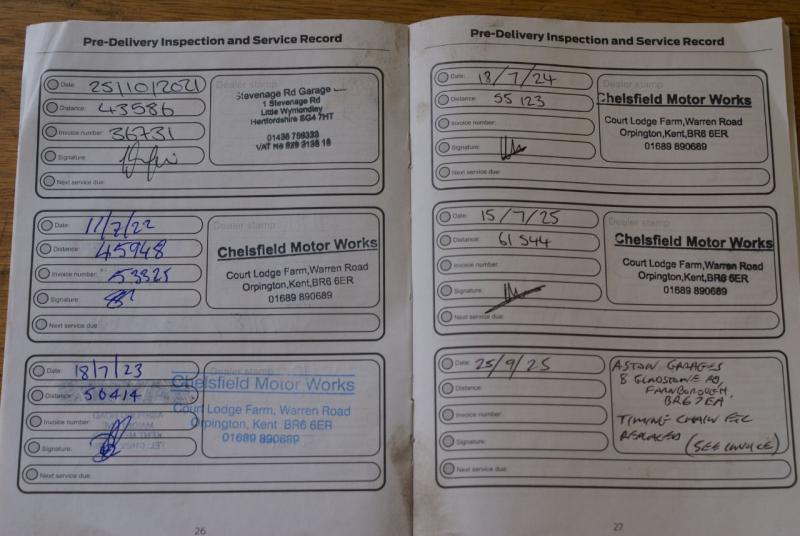 Pre-Delivery Inspection and Service Record
Date: 25/10/2021
Distance: 43586
Invoice number: 36731
Signature:
Next service due:
Dealer stamp
Stevenage Rd Garage
1 Stevenage Rd
Little Wymondley
Hertfordshire SG4 7HT
01438 759333
VAT No
Date: 11/7/22
Distance: 45948
Invoice number: 53325
Signature:
Next service due:
Dealer stamp
Chelsfield Motor Works
Court Lodge Farm,Warren Road
Orpington,Kent,BR6 6ER
01689 890689
Date: 18/7/23
Distance: 50414
Invoice number:
Signature:
Next service due:
Dealer stamp
Chelsfield Motor Works
Court Lodge Farm, Warren Road
Orpington, Kent BR6 6ER
01689 890689
26
Pre-Delivery Inspection and Service Record
Date: 18/7/24
Distance: 55123
Invoice number:
Signature:
Next service due:
Dealer stamp
Chelsfield Motor Works
Court Lodge Farm,Warren Road
Orpington,Kent,BR6 6ER
01689 890689
Date: 15/7/25
Distance: 61544
Invoice number:
Signature:
Next service due:
Dealer stamp
Chelsfield Motor Works
Court Lodge Farm,Warren Road
Orpington,Kent,BR6 6ER
01689 890689
Date: 25/9/25
Distance:
Invoice number:
Signature:
Next service due:
ASTON GARAGES
8 GLADSTONE RD,
FARNBOROUGH,
BR6 7EA
TIMING CHAIN ETC
REPLACED (SEE INVOICE)
27